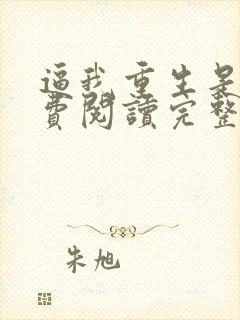 逼我重生是
費閱讀完整
朱旭